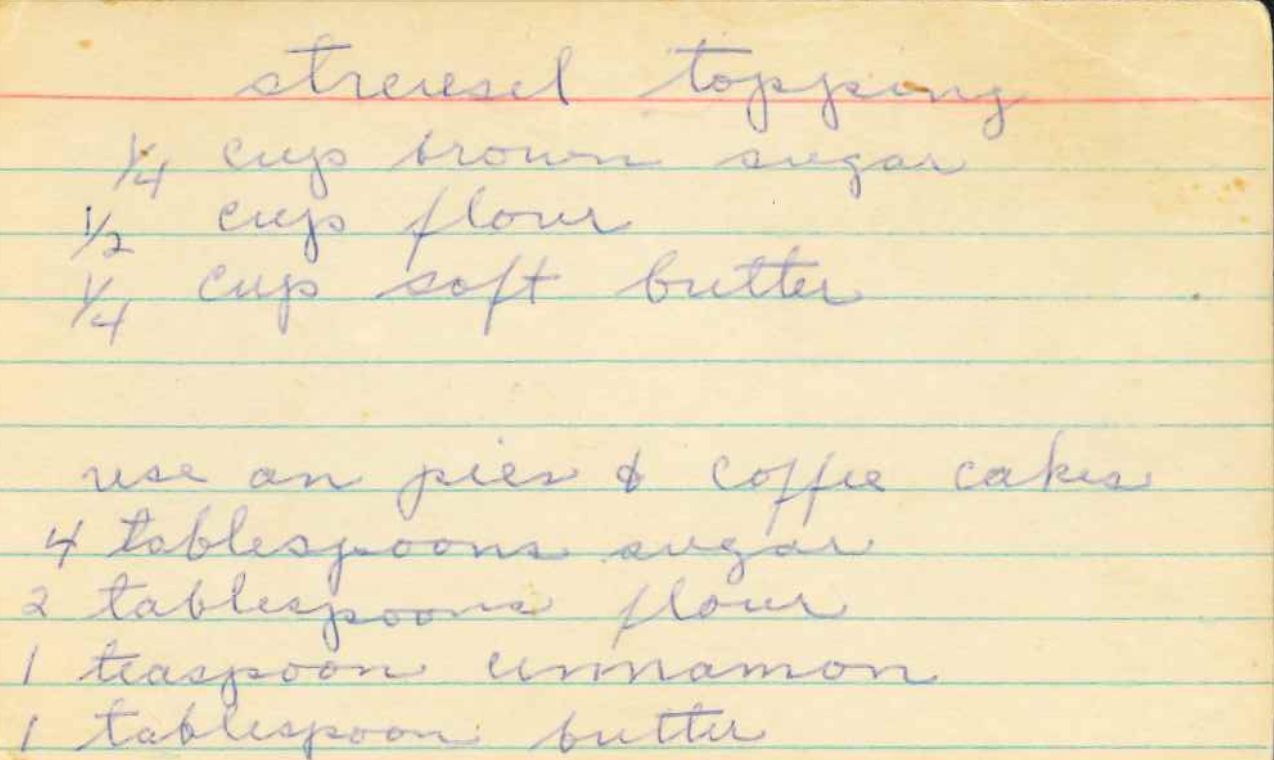 streusel topping
1/4 cup brown sugar
1/2 cup flour
1/4 cup soft butter
use on pies & coffee cakes
4 tablespoons sugar
2 tablespoons flour
1 teaspoon cinnamon
1 tablespoon butter